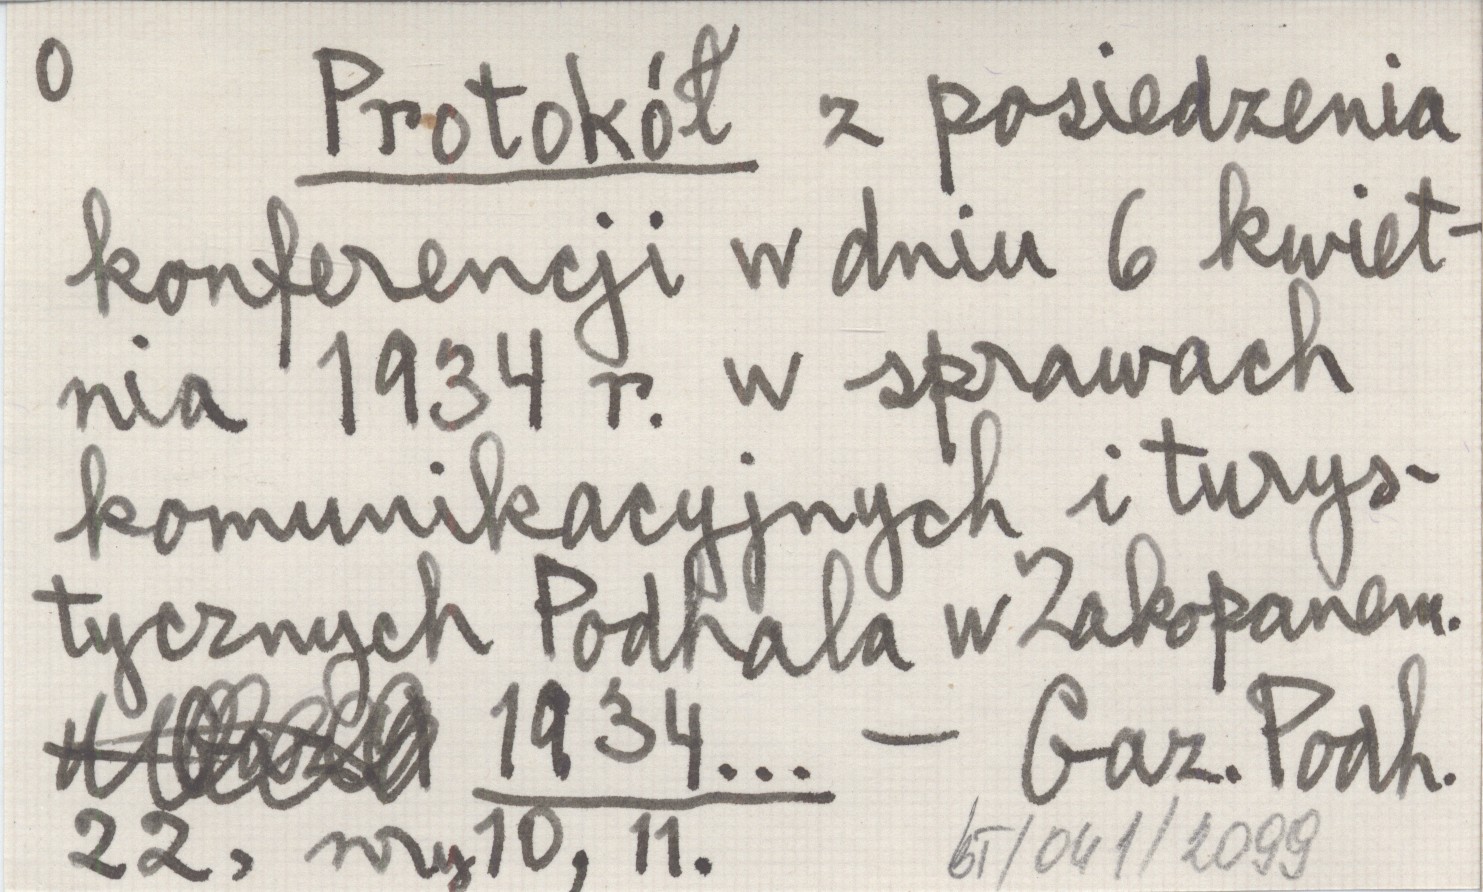 0 Protokół z posiedzenia
konferencji w dniu 6 kwiet-
nia 1934 r. w sprawach
komunikacyjnych i turys-
tycznych Podhala w Zakopanem.
1934... – Gaz. Podh.
22, nry 10, 11.
bT/041/2099